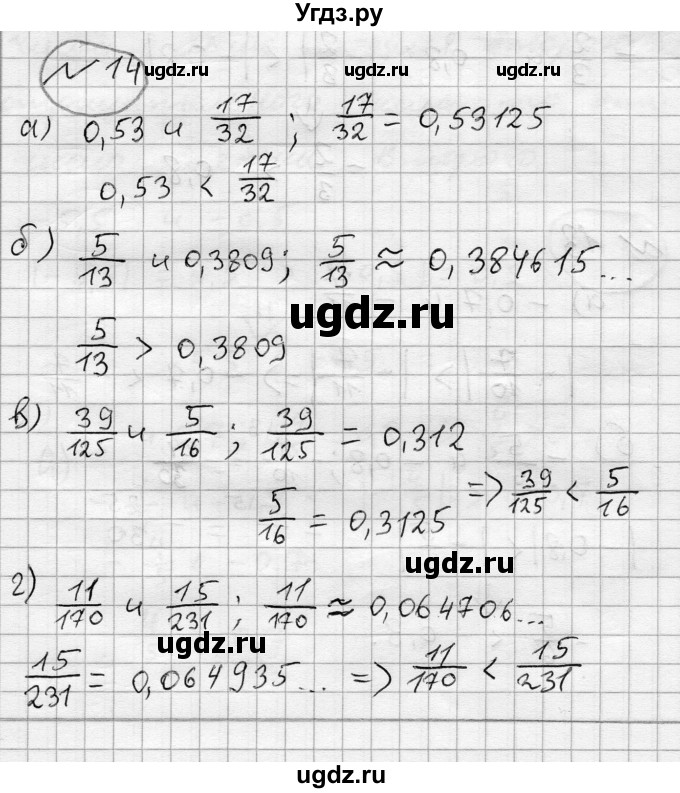 Угдз.ру
№ 14
ugdz.ru ugdz.ru ugdz.ru
а) 0,53 и 17/32 ; 17/32 = 0,53125
0,53 < 17/32
б) 5/13 и 0,3809; 5/13 ≈ 0,384615...
ugdz.ru
5/13 > 0,3809
в) 39/125 и 5/16 ; 39/125 = 0,312
5/16 = 0,3125 => 39/125 < 5/16
ugdz.ru ugdz.ru
г) 11/170 и 15/231 ; 11/170 ≈ 0,064706...
ugdz.ru
15/231 = 0,064935... => 11/170 < 15/231
ugdz.ru
ugdz.ru